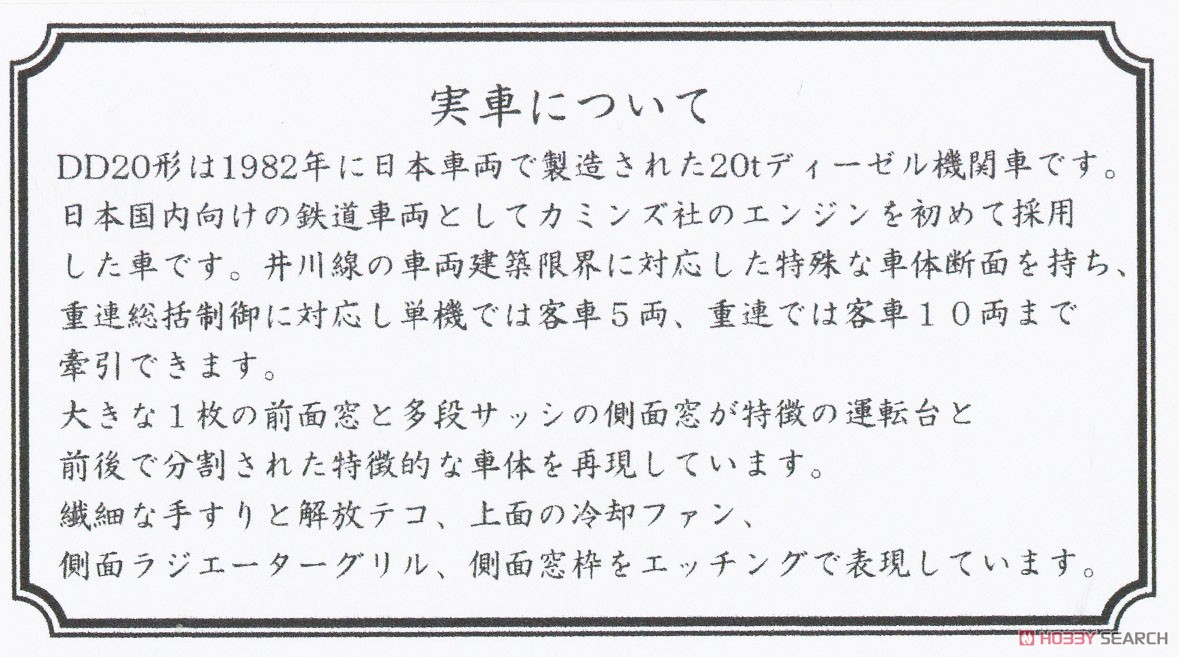 実車について
DD20形は1982年に日本車両で製造された20tディーゼル機関車です。
日本国内向けの鉄道車両としてカミンズ社のエンジンを初めて採用
した車です。井川線の車両建築限界に対応した特殊な車体断面を持ち、
重連総括制御に対応し単機では客車５両、重連では客車１０両まで
牽引できます。
大きな１枚の前面窓と多段サッシの側面窓が特徴の運転台と
前後で分割された特徴的な車体を再現しています。
繊細な手すりと解放テコ、上面の冷却ファン、
側面ラジエーターグリル、側面窓枠をエッチングで表現しています。
HOBBY SEARCH